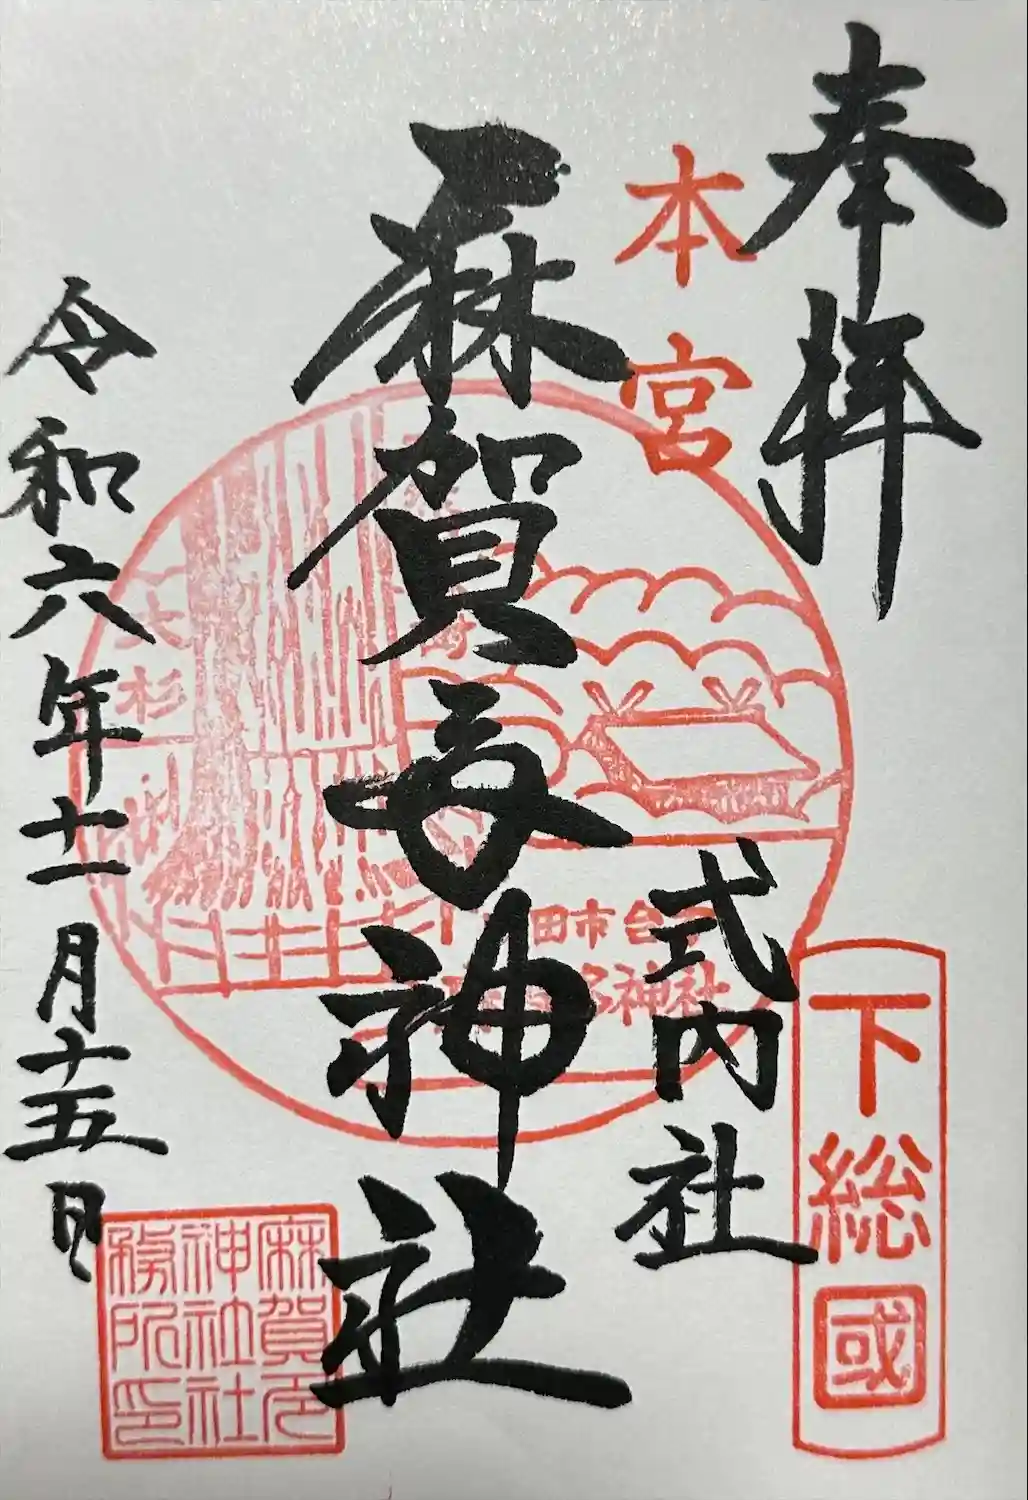 奉拝
本宮
式内社
下総國
麻賀多神社
大杉
田市台
神社
令和六年十一月十五日
麻賀多
神社社
務所印